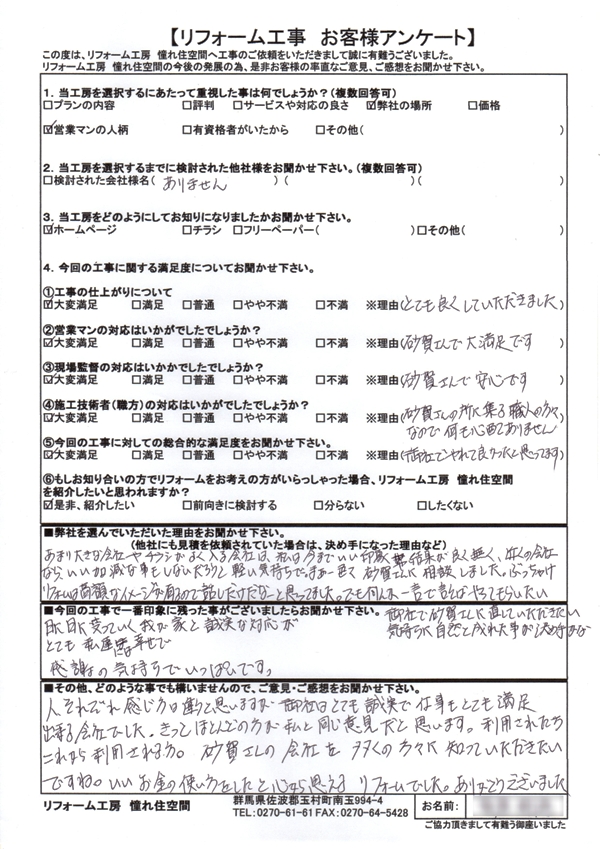 【リフォーム工事　お客様アンケート】
この度は、リフォーム工房　憧れ住空間へ工事のご依頼をいただきまして誠に有難うございました。
リフォーム工房　憧れ住空間の今後の発展の為、是非お客様の率直なご意見、ご感想をお聞かせ下さい。
1．当工房を選択するにあたって重視した事は何でしょうか？（複数回答可）
□プランの内容　□評判　□サービスや対応の良さ　☑弊社の場所　□価格
☑営業マンの人柄　□有資格者がいたから　□その他（　）
2．当工房を選択するまでに検討された他社様をお聞かせ下さい。（複数回答可）
□検討された会社様名（ありません）（　）（　）
3．当工房をどのようにしてお知りになりましたかお聞かせ下さい。
☑ホームページ　□チラシ　□フリーペーパー（　）□その他（　）
4．今回の工事に関する満足度についてお聞かせ下さい。
①工事の仕上がりについて
☑大変満足　□満足　□普通　□やや不満　□不満　※理由（とても良くしていただきました）
②営業マンの対応はいかがでしたでしょうか？
☑大変満足　□満足　□普通　□やや不満　□不満　※理由（砂賀さんで大満足です）
③現場監督の対応はいかがでしたでしょうか？
☑大変満足　□満足　□普通　□やや不満　□不満　※理由（砂賀さんで安心です）
④施工技術者（職方）の対応はいかがでしたでしょうか？
☑大変満足　□満足　□普通　□やや不満　□不満　※理由（砂賀さんの所に集る職人の方々
なので何も心配ありません
⑤今回の工事に対しての総合的な満足度をお聞かせ下さい。
☑大変満足　□満足　□普通　□やや不満　□不満　※理由（御社でやれて良かったと思ってます）
⑥もしお知り合いの方でリフォームをお考えの方がいらっしゃった場合、リフォーム工房　憧れ住空間
を紹介したいと思われますか？
☑是非、紹介したい　□前向きに検討する　□分らない　□したくない
■弊社を選んでいただいた理由をお聞かせ下さい。
（他社にも見積を依頼されていた場合は、決め手になった理由など）
あまり大きな会社やチラシがよく入る会社は、私は今までいい印象 結果が良く無く、近くの会社
なら、いい加減な事もしないだろうと軽い気持ちで 砂賀さんに相談しました。ぶっちゃけ
リフォームは高額なイメージが有るので 思ってました。でも何んか一番で
■今回の工事で一番印象に残った事がございましたらお聞かせ下さい。
御社で砂賀さんに直していただきたい
気持ちに自然と成れた事が決め手かな
日に日に変っていく我が家と誠実な対応が
とても 幸せで
感謝の気持ちでいっぱいです。
■その他、どのような事でも構いませんので、ご意見・ご感想をお聞かせ下さい。
人それぞれ感じ方は違うと思いますが 御社はとても誠実で仕事もとても満足
出来る会社でした。きっとほとんどの方が私と同じ意見だと思います。利用された方
これから利用される方。砂賀さんの会社を多くの方々に知っていただきたい
ですね。いいお金の使い方をしたと心から思えるリフォームでした。ありがとうございました
リフォーム工房　憧れ住空間
群馬県佐波郡玉村町南玉994-4
TEL:0270-61-61 FAX:0270-64-5428
お名前：
ご協力頂きまして有難う御座いました